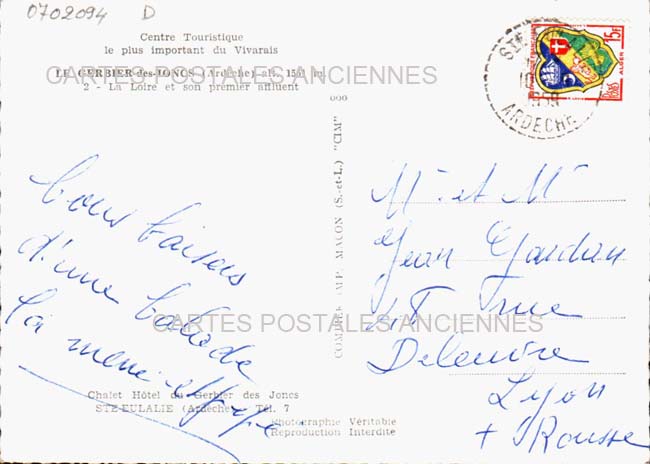 0702094 D
Centre Touristique
le plus important du Vivarais
LE GERBIER-des-JONCS (Ardèche) alt. 1551 m.
2 - La Loire et son premier affluent
CARTES POSTALES ANCIENNES
15F
ALGER
ARDECHE
COMBIER IMP. MACON (S.-et-L.) "CIM"
Bons baisers
d'une balade
La mémé
Mr et Me
Jean Gardan
48 rue
Deleuvre
Lyon
+ Rousse
CARTES POSTALES ANCIENNES
Chalet Hôtel du Gerbier des Joncs
STE-EULALIE (Ardèche) - Tél. 7
Photographie Véritable
Reproduction Interdite